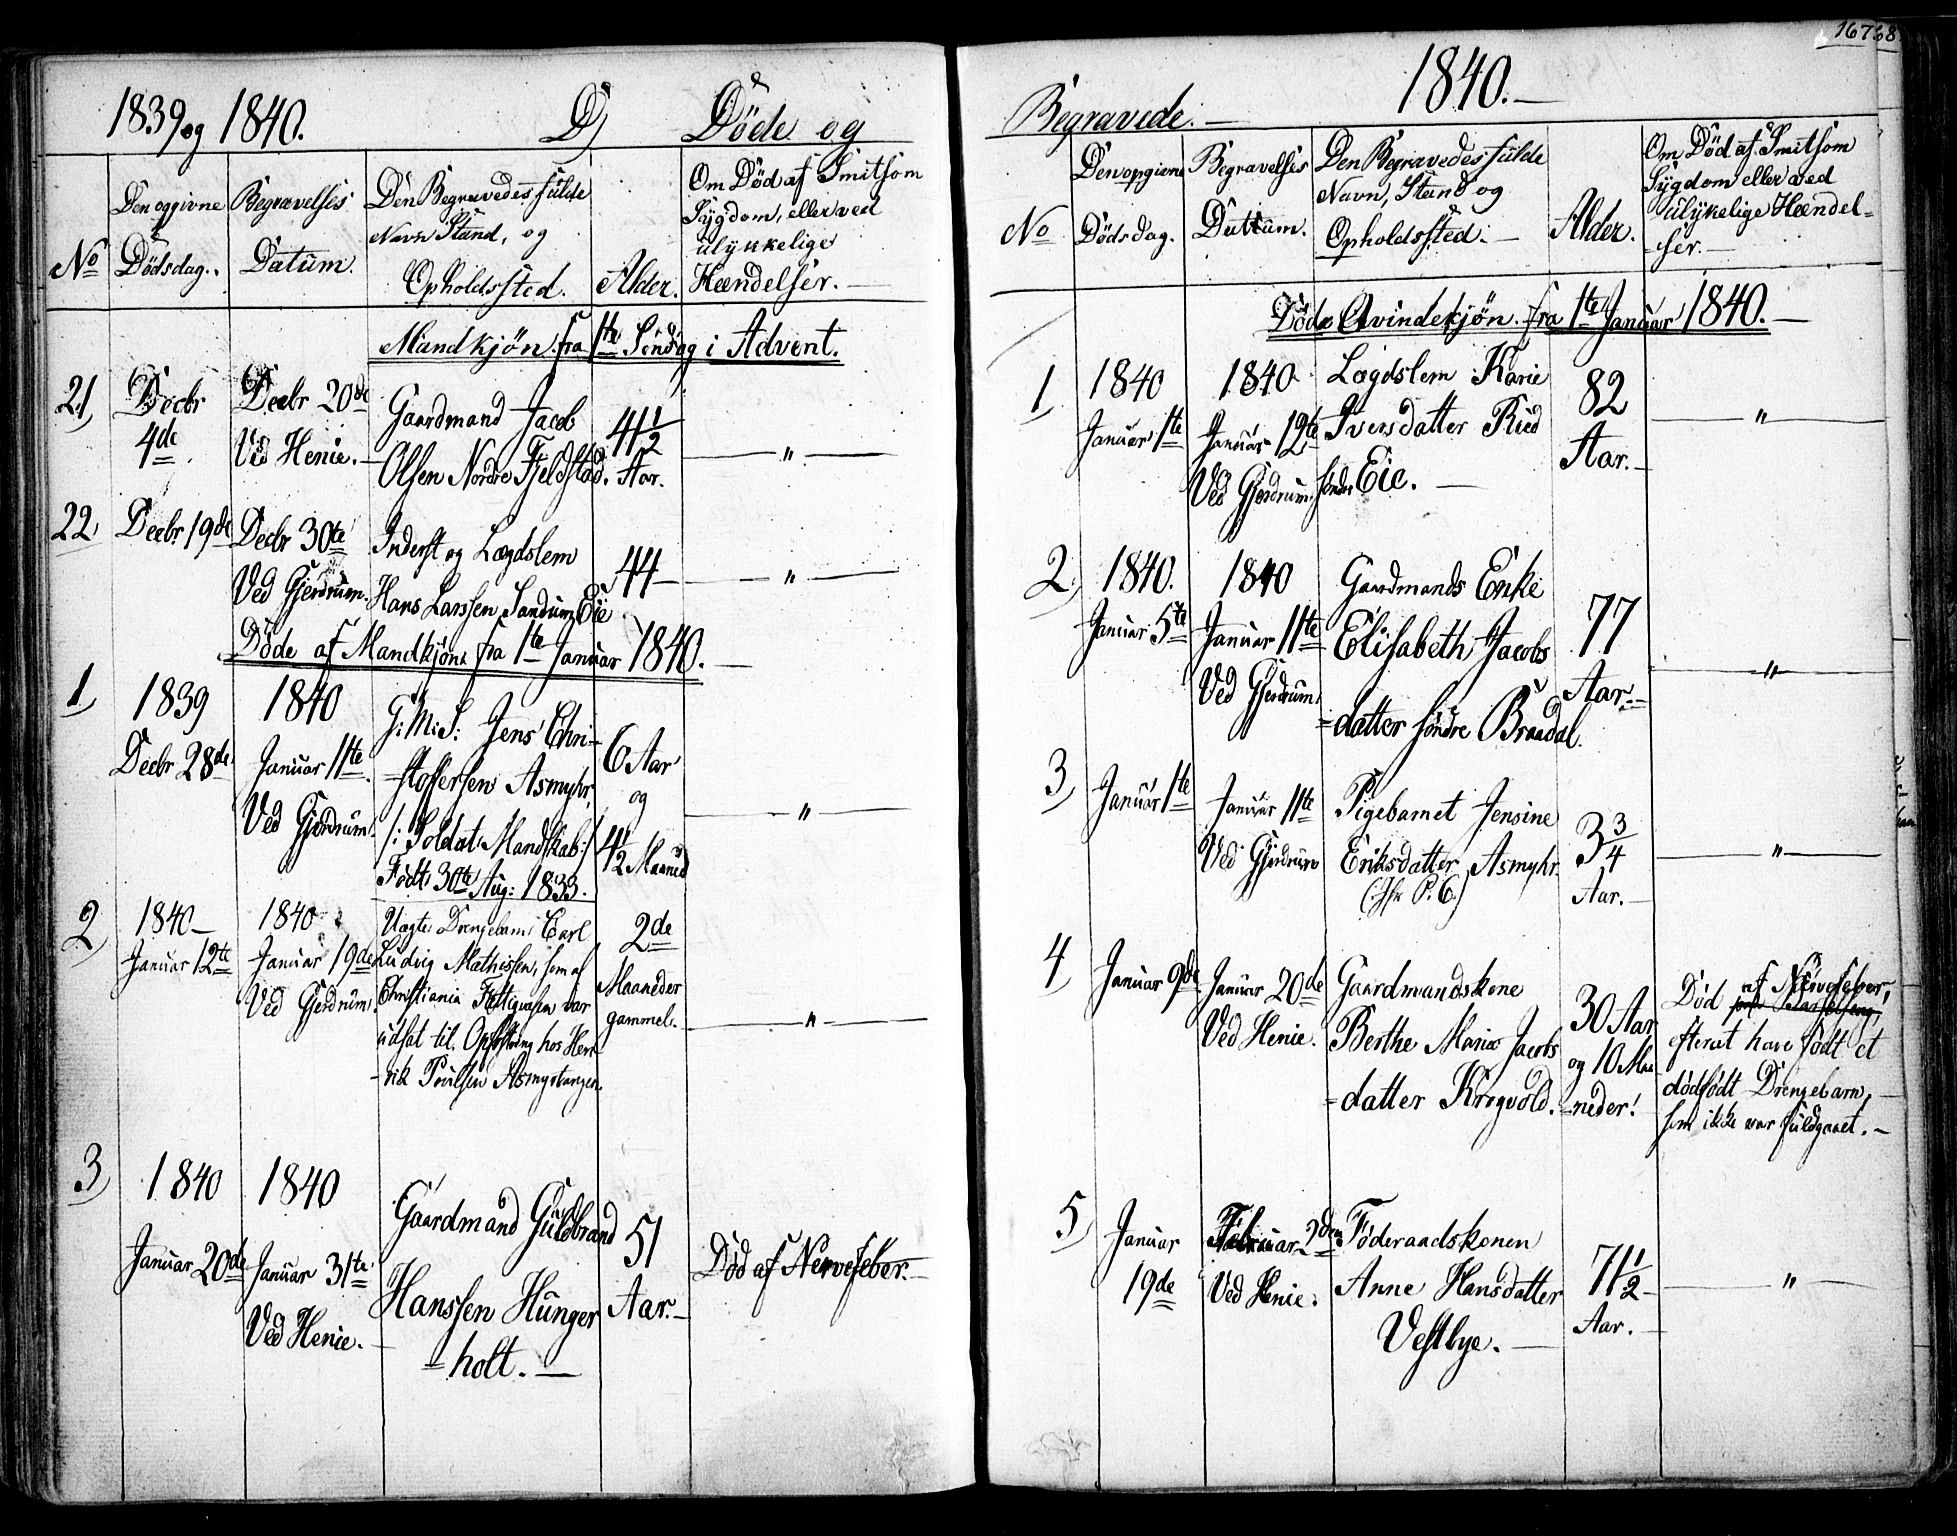 1839 og 1840. D) Döde og
No
Den opgivne
Dödsdag.
Begravelses
Datum.
Den Begravedes fulde
Navn Stand, og
Opholdssted.
Alder.
Om Död af Smitsom
Sygdom, eller ved
ulykkelige
Hændelser.
Mandkjön fra 1te Söndag i Advent.
21)
Decbr
4de
Decbr 20de
Ved Henie.
Gaardmand Jacob
Olsen Nordre Fjeldstad.
41 1/2
Aar.
"
22)
Decbr 19de
Decbr 30te
Ved Gjerdrum.
Inderst og Lægdslem
Hans Larssen Sandum Eie
44
"
Döde af Mandkjön fra 1te Januar 1840.
1)
1839
Decbr 28de
1840
Januar 11te
Ved Gjerdrum.
G: M: S: Jens Chri-
-stoffersen Asmyhr,
/: Soldat: Mandskab:/
Födt: 30te Aug: 1833.
6 Aar
og
4 1/2 Maaned
"
2)
1840
Januar 12te
1840
Januar 19de
Ved Gjerdrum.
Uægte: Drengebarn: Carl
Ludvig Mathissen, som af
Christiania Fattigvæsen var
udsat til Opfostring hos Hen-
-rik Poulsen Asmystangen.
2de
Maaneder
gammel.
"
3)
1840
Januar 20de
1840
Januar 31te
Ved Henie.
Gaardmand Guldbrand
Hanssen Hunger
=holt.
51
Aar.
Död af Nervefeber.
16768
Begravede. 1840.
No
Den opgivne
Dödsdag.
Begravelses
Datum.
Den Begravedes fulde
Navn, Stand og
Opholdssted.
Alder.
Om Död af Smitsom
Sygdom eller ved
ulykelige Hændel=
-ser.
Döde Qvindekjön fra 1te Januar 1840.
1)
1840
Januar 1te
1840
Januar 12te
Ved Gjerdrum.
Lægdslem Karie
Iversdatter Rud
söndre Eie.
82
Aar.
"
2)
1840.
Januar 5te
1840
Januar 11te
Ved Gjerdrum.
Gaardmands Enke
Elisabeth Jacobs
=datter söndre Braadal.
77
Aar.
"
3)
Januar 1te
Januar 11te
Ved Gjerdrum
Pigebarnet Jensine
Eriksdatter Asmyhr.
(Jfr P. 6.)
3 3/4
Aar.
"
4)
Januar 9de
Januar 20de
Ved Henie.
Gaardmandskone
Berthe Marie Jacobs
=datter Krogvold.
30 Aar
og 10 Maa
=neder!
Död af Nervefeber,
efterat have födt et
dödfödt Drengebarn,
som ikke var fuldgaaet.
5)
Januar
19de
Februar 2den
Ved Henie.
Föderaadskonen
Anne Hansdatter
Vestbye.
71 1/2
Aar.
"